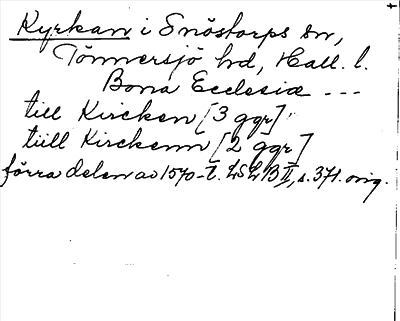 Kyrkan i Snöstorps sn,
Tönnersjö hd, Hall. l.
Bona Ecclesiæ ---
till Kircken [3 ggr]
tiill Kirckenn [2 ggr]
förra delen av 1570-t. LSH B II, s. 371. orig.